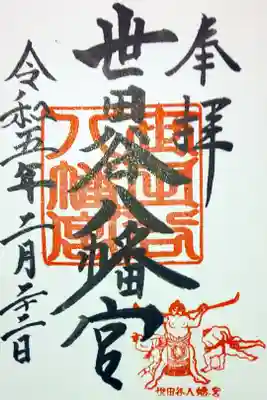 奉拝
世田谷八幡宮
令和五年二月二十二日
世田谷八幡宮
世田谷八幡宮